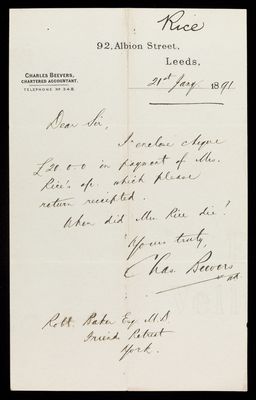 Rice
92, Albion Street,
Leeds,
CHARLES BEEVERS,
CHARTERED ACCOUNTANT.
TELEPHONE Nº 348.
21st Jany 1891
Dear Sir,
I enclose cheque
£20.0.0 in payment of Mr.
Rice's a/c. which please
return receipted.
When did Mr. Rice die?
Yours truly,
Chas. Beevers
Robt. Baker Esq M.D.
Friends Retreat
York.